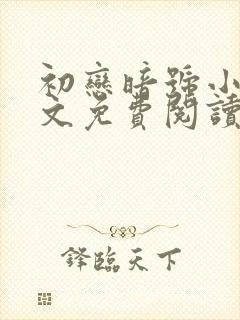 初戀暗號小
文免費閱讀
鋒臨天下